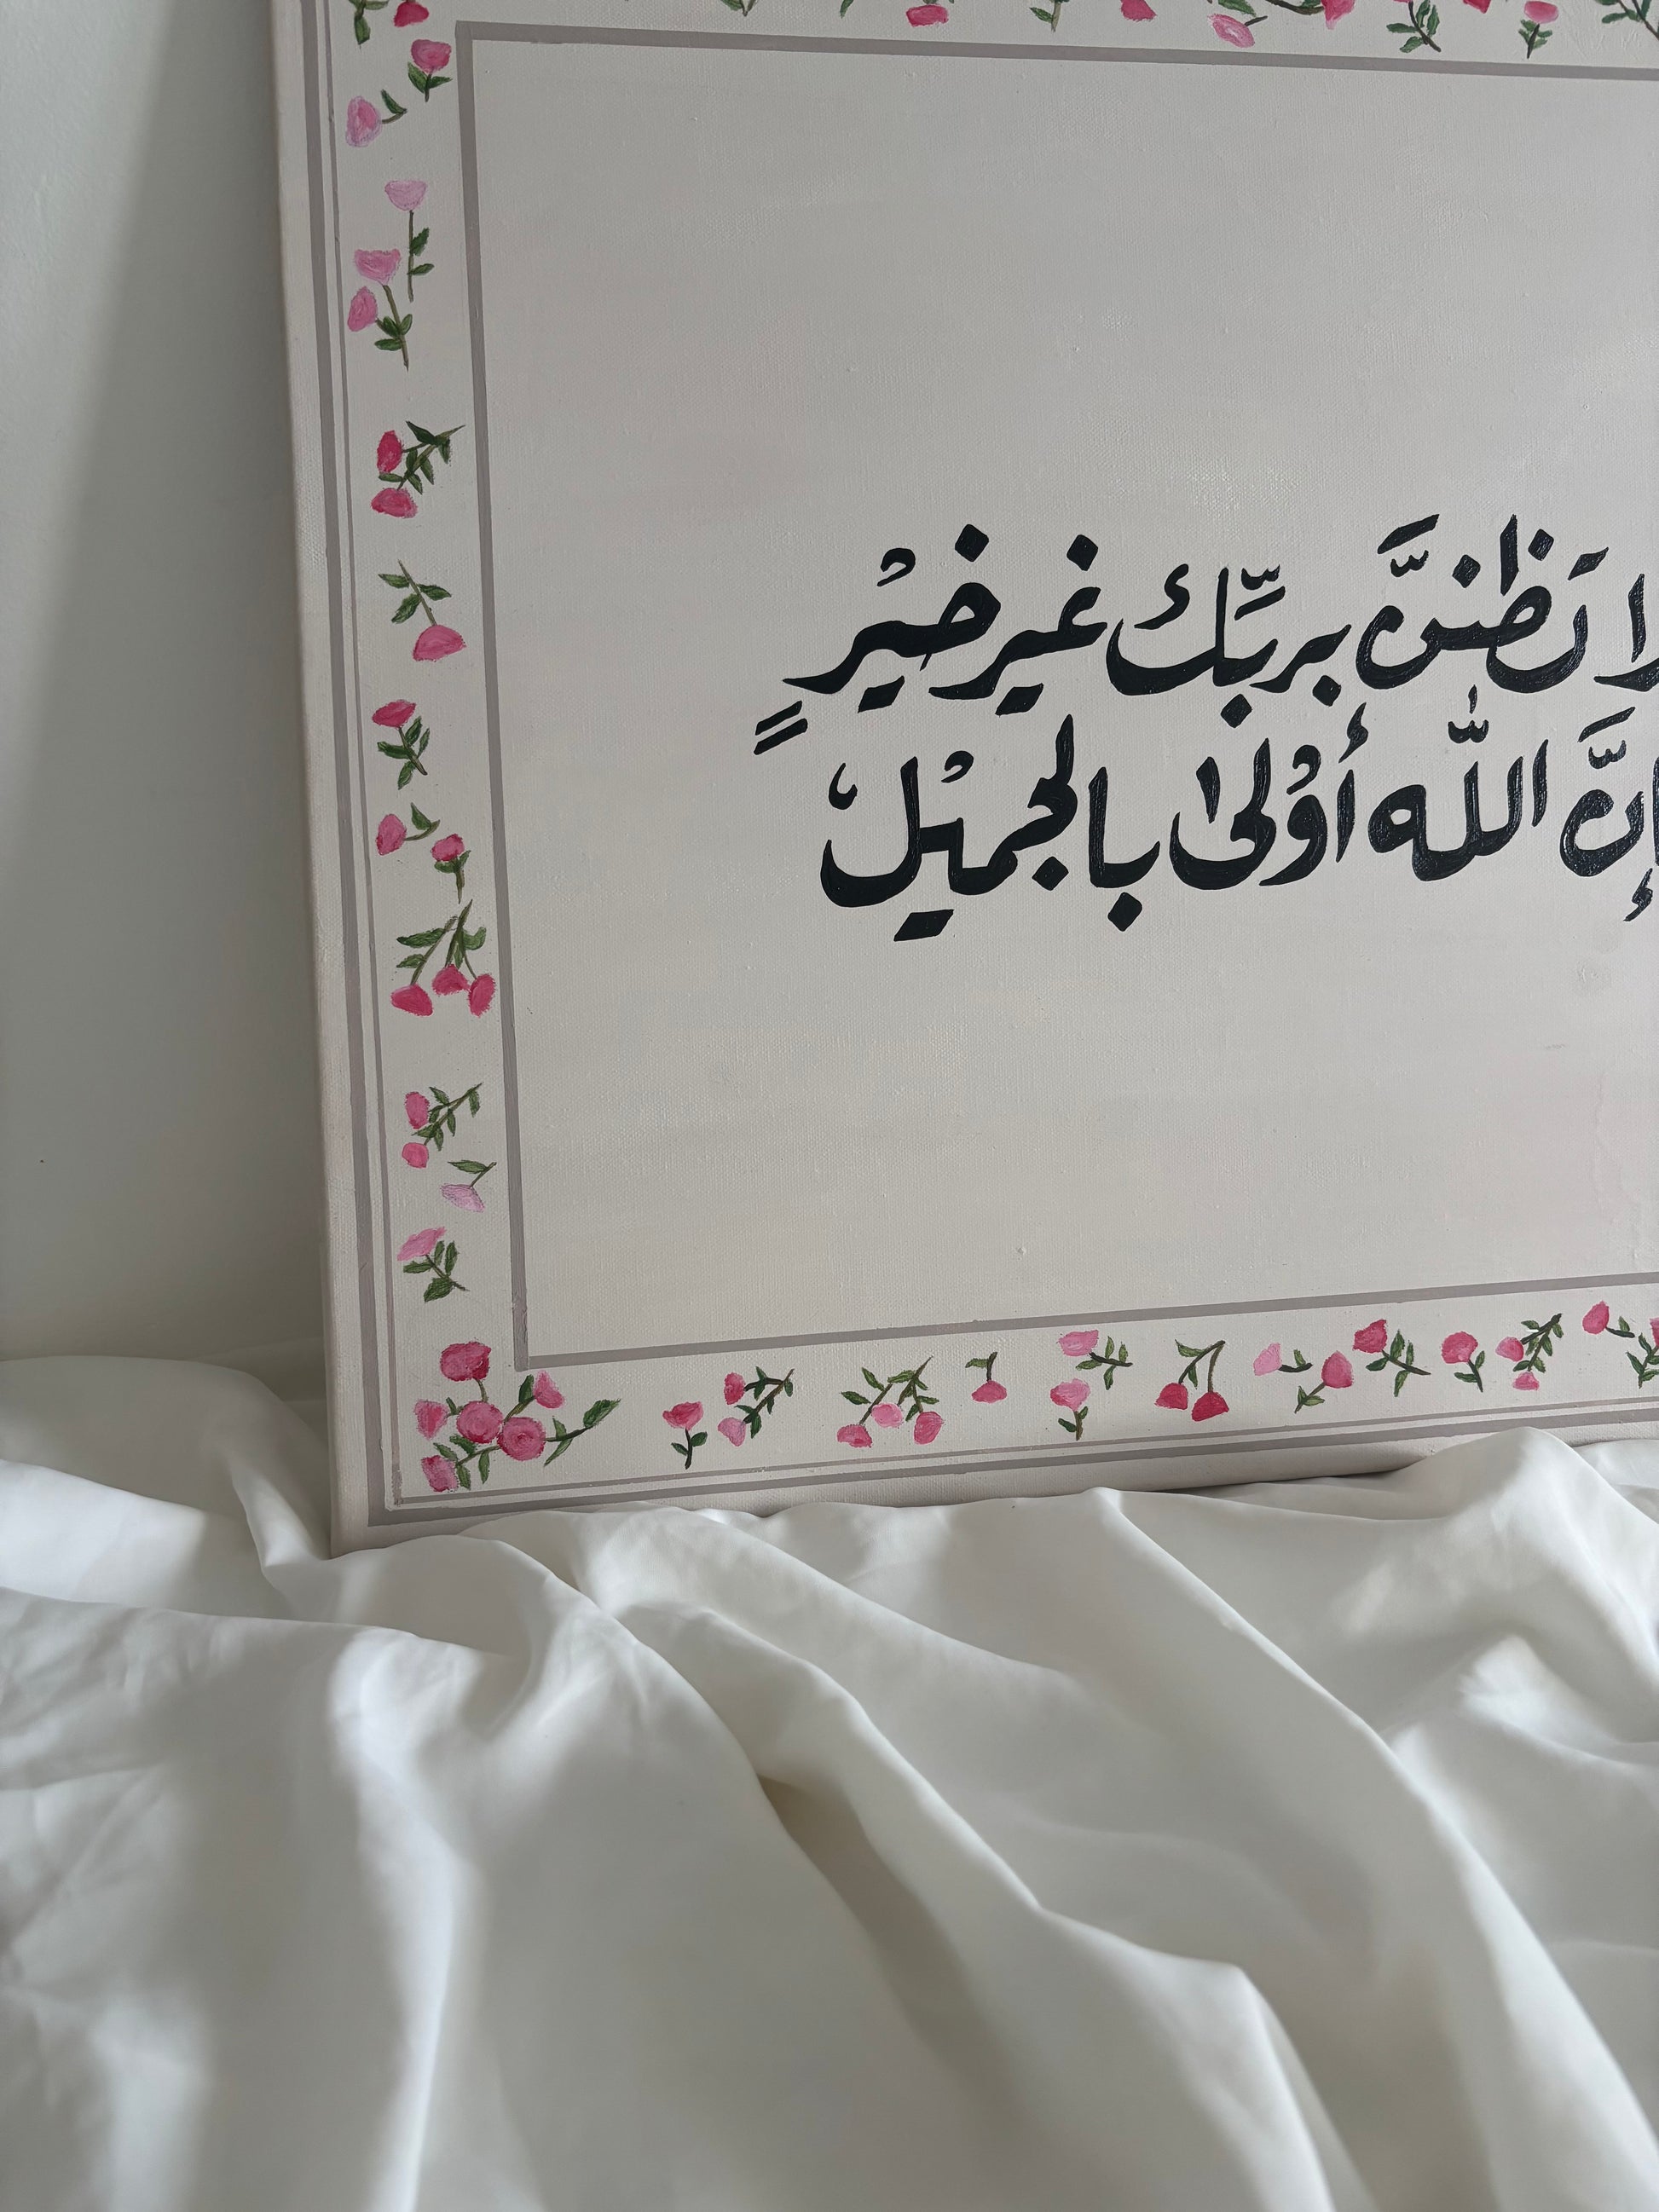 لا تَظُنَّ بربِّك غير خيْرٍ
إنَّ اللّه أوْلى بالجميْل